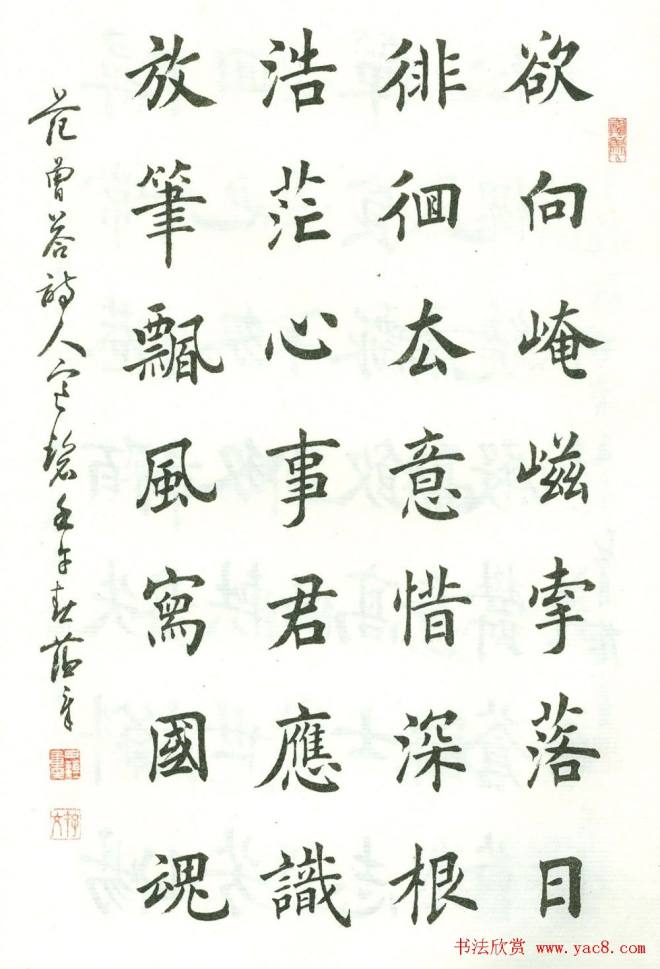 欲向崦嵫牵落日
徘徊去意惜深根
浩茫心事君應識
放筆飄風寫國魂
范曾荅詩人寒碧壬午春
书法欣赏 www.yac8.com